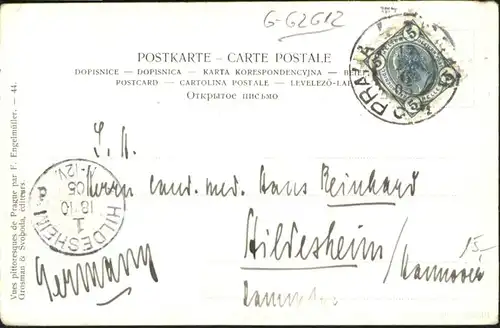 G-G2G12
POSTKARTE – CARTE POSTALE
DOPISNICE — DOPISNICA — KARTA KORESPONDENCYJNA —
POSTCARD — CARTOLINA POSTALE — LEVELEZŐ-LA
Открытое письмо
PRAHA
5
S. H.
Herrn cand. med. Hans Reinhard
Hildesheim/
Hannover
15
Germany
HILDESHEIM
1
18.10
05
11-12V.
Vues pittoresques de Prague par F. Engelmüller. — 44.
Grosman & Svoboda, éditeurs.